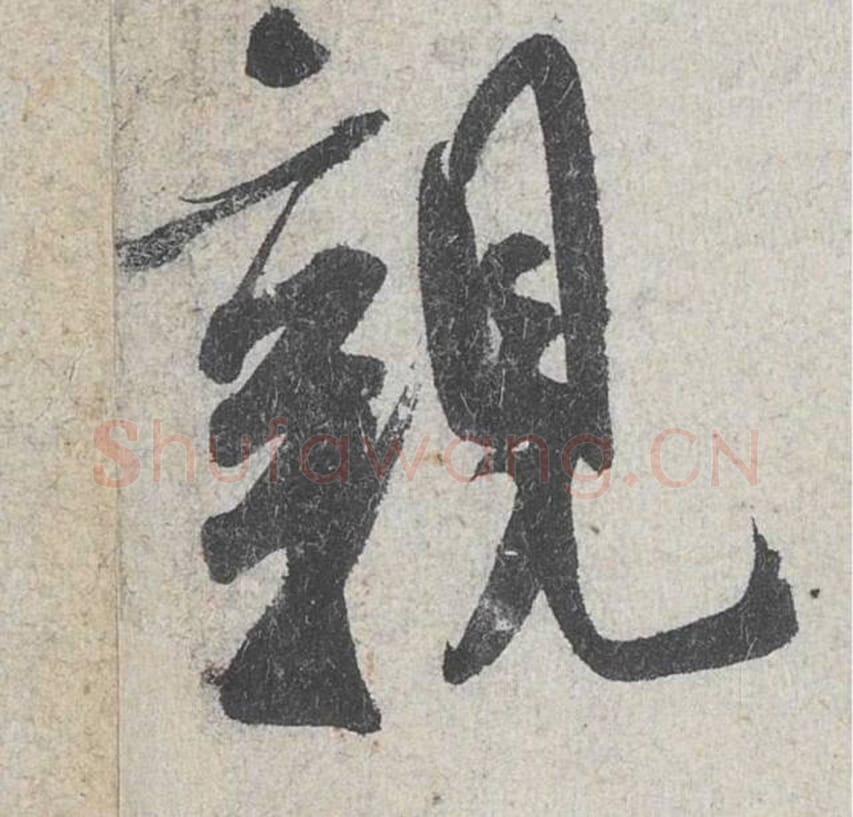 親
Shufawang.CN